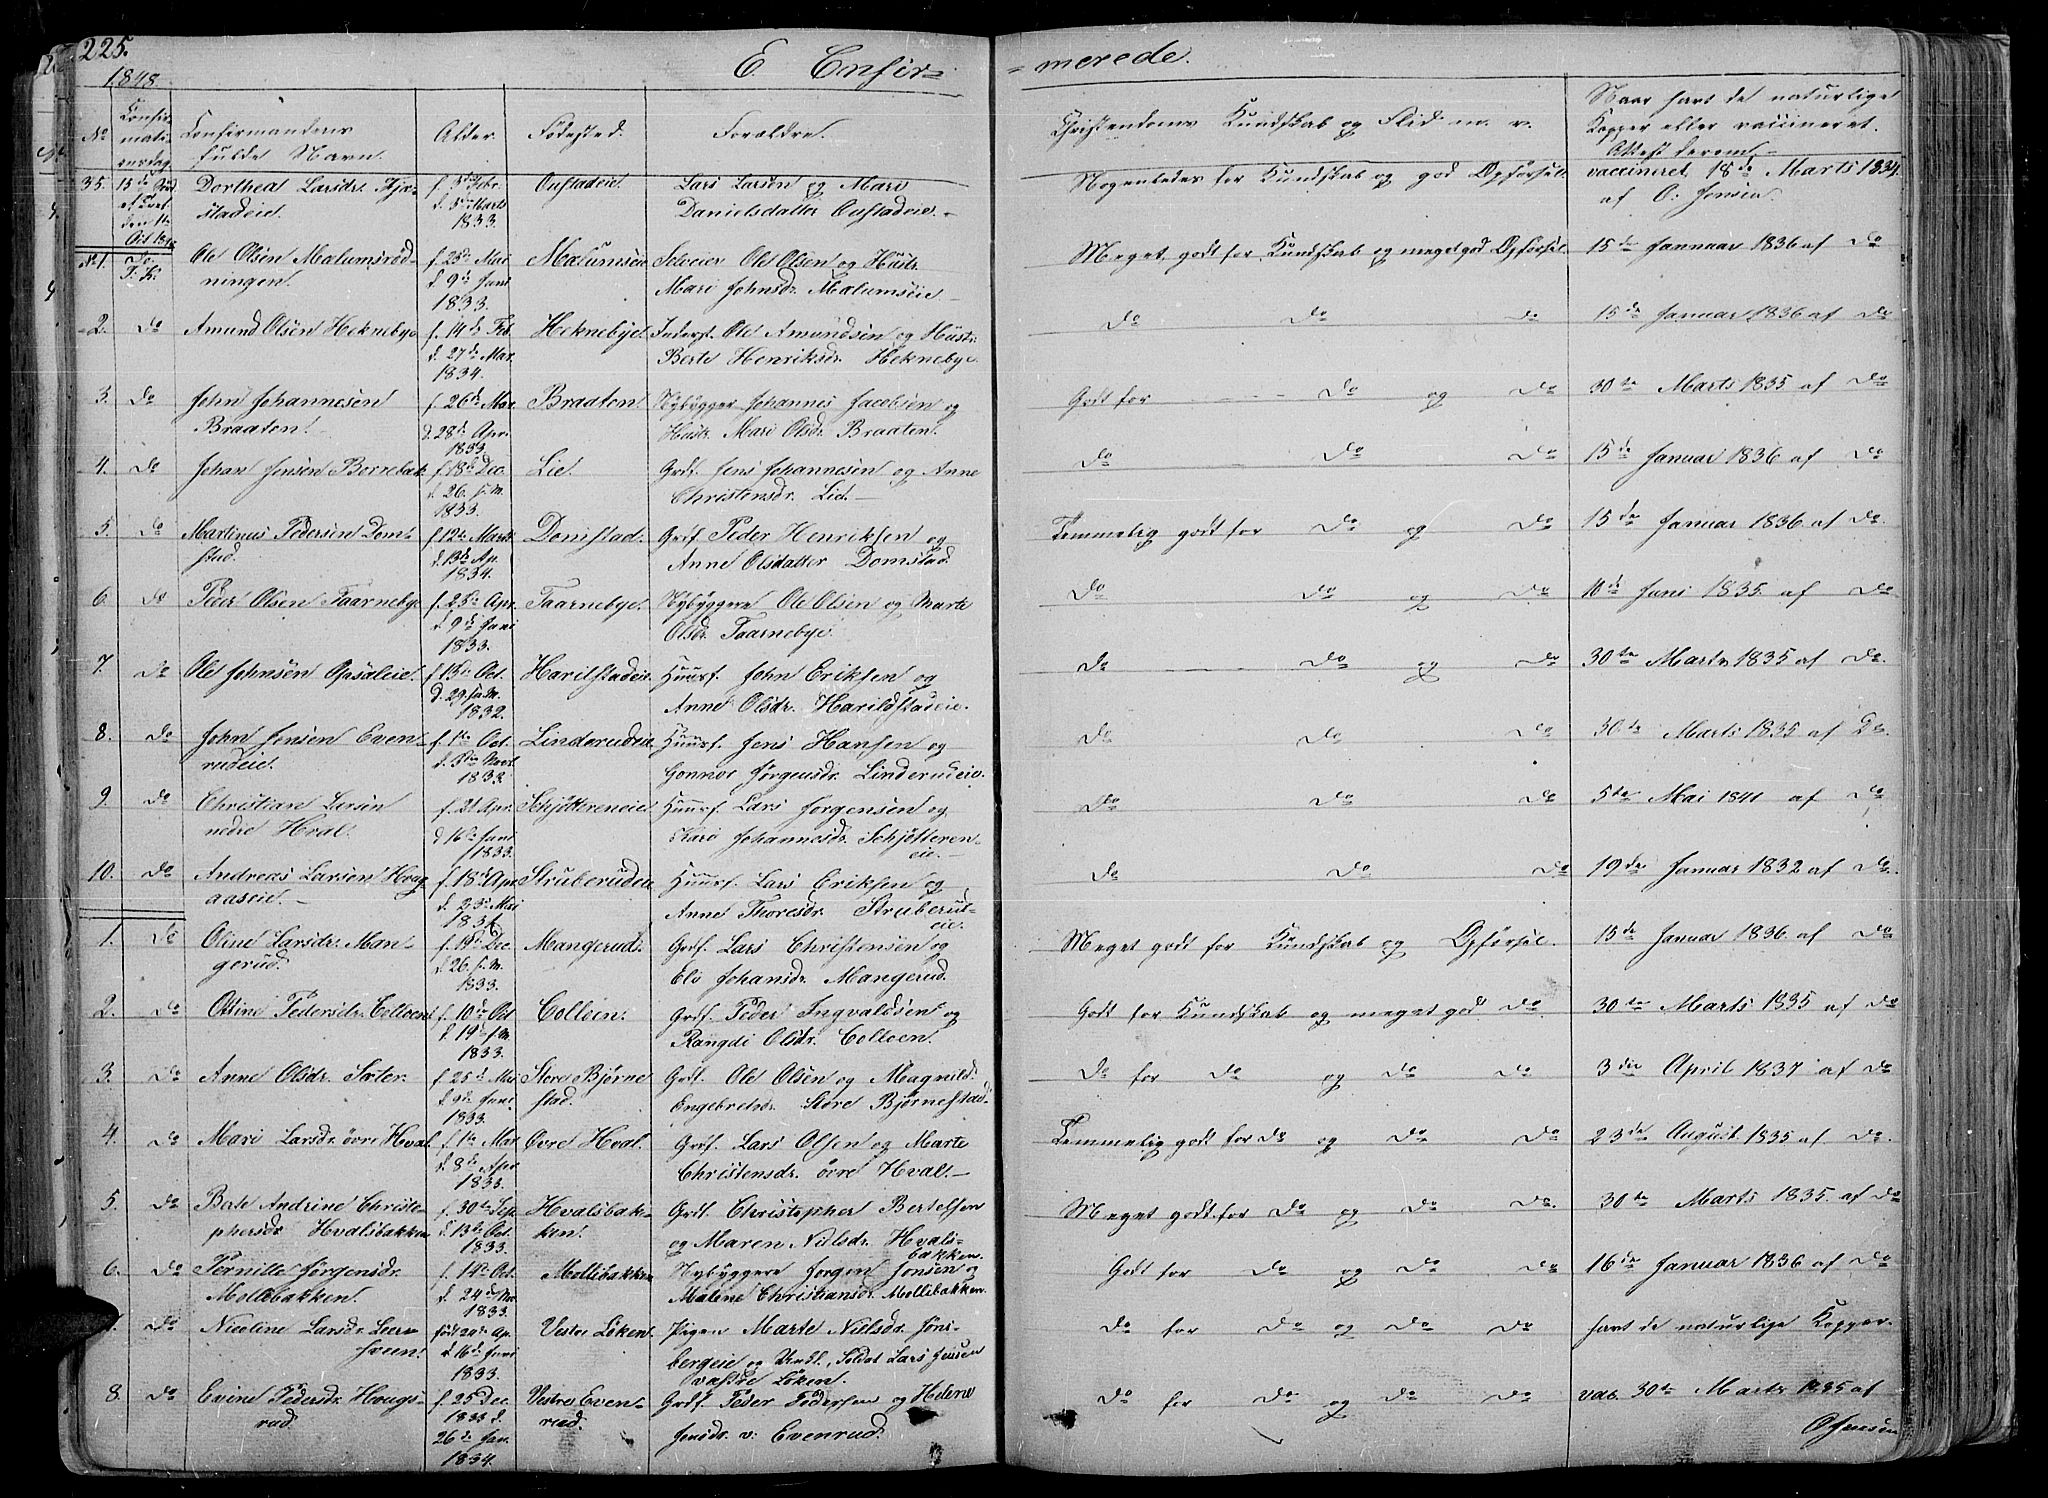 225.
1848.
E. Confir=
= merede.
No
Confir-
mati-
onsdag.
Confirmandens
fulde Navn.
Alder.
Fødested.
Forældre.
Christendoms Kundskab og Flid m. v.
Naar havt de naturlige
Kopper eller vaccineret.
Attest derom.
35. Dorthea Larsdr. f. 5te Febr. Oustadeie. Lars Larsen og Mari
stadeie. d. 5te Marts Danielsdatter Oustadeie.
1833.
Nogenledes for Kundskab og god Opførsel. vaccineret 18de Marts 1834
af O: Jensen.
No 1. Do Ole Olsen Malumsrød- f. 25de Mai Malumseie Selveier Ole Olsen og Hustr.
ningen. d. 9de Juni Mari Johnsdr. Malumseie
1833.
Meget godt for Kundskab og meget god Opførsel. 15de Januar 1836 af Do
2. Do Amund Olsen Heknebye f. 14de Feb. Heknebye. Inderst. Ole Amundsen og Hustr.
d. 27de Mar. Berte Henriksdr. Heknebye.
1834.
Do Do Do 15de Januar 1836 af Do
3. Do John Johannesen f. 26de Mar. Braaten. Nybygger Johannes Jacobsen og
Braaten. d. 28de Apr. Hustr. Mari Olsdr. Braaten.
1833.
Godt for Do og Do 30te Marts 1835 af Do
4. Do Johan Jensen Borrebæk f. 18de Dec. Lie. Grdf. Jens Johannesen og Anne
d. 26. s. M. Christensdr. Lie.
1833.
Do Do Do 15de Januar 1836 af Do
5. Do Martinus Pedersen Dom- f. 12te Marts Domstad. Grdf. Peder Henriksen og
stad. d. 13de Ap. Anne Olsdatter Domstad.
1834.
Temmelig godt for Do og Do 15de Januar 1836 af Do.
6. Do Peder Olsen Taarnebye f. 25de Apr. Taarnebye. Nybyggere Ole Olsen og Marte
d. 9de Juni Olsdr. Taarnebye.
1833.
Do Do og Do 10de Juni 1835 af Do
7. Do Ole Johnsen Opsaleie. f. 15de Oct. Harilstadeie. Huusf. John Eriksen og
d. 29. s. M. Anne Olsdr. Harildstadeie.
1832.
Do Do og Do 30te Marts 1835 af Do.
8. Do John Jensen Even- f. 1te Oct. Linderudeie. Huusf. Jens Hansen og
rudeie. Gonnor Jørgensdr. Linderudeie.
1833.
Do Do Do 30te Marts 1835 af Do.
9. Do Christian Larsen f. 21 Apr. Schjøttereneie Huusf. Lars Jørgensen og
nedre Hval. d. 16de Juni Kari Johannesdr. Schjøtteren-
1833. eie.
Do Do Do 5te Mai 1841 af Do
10. Do Andreas Larsen Houg- f. 18de Apr. Struberudeie Huusf. Lars Eriksen og
aaseie. d. 23de Mai Anne Thoresdr. Struberud-
1831. eie.
Do Do Do 19de Januar 1832 af Do.
1. Do Oline Larsdr. Man- f. 19de Dec. Mangerud. Grdf. Lars Christensen og
gerud. d. 26. s. M. Eli Johansdr. Mangerud.
1833.
Meget godt for Kundskab og Opførsel. 15de Januar 1836 af Do
2. Do Ottine Pedersdr. Colloen. f. 10de Oct. Colloen. Grdf. Peder Ingvaldsen og
d. 19de s. M. Rangdi Olsdr. Colloen.
1833.
Godt for Kundskab og meget god Do. 30te Marts 1835 af Do
3. Do Anne Olsdr. Sæter. f. 25de Mai Store Bjørne- Grdf. Ole Olsen og Magnild
d. 9de Juni stad. Engebretsdr. Store Bjørnestad.
1833.
Do for Do og Do Do 3die April 1837 af Do
4. Do Mari Larsdr. øvre Hval. f. 1te Mar. Øvre Hval. Grdf. Lars Olsen og Marte
d. 8de Apr. Christensdr. øvre Hval.
1833.
Temmelig godt for Do og Do Do 23de August 1835 af Do.
5. Do Berte Andrine Christo- f. 30te Sep. Hvalsbak- Grdf. Christopher Bertelsen
phersdr. Hvalsbakken d. 13de Oct. ken. og Maren Nielsdr. Hvals-
1833. bakken.
Meget godt for Do og Do Do. 30te Marts 1835 af Do
6. Do Pernille Jørgensdr. f. 14de Oct. Mollebakken Nybyggere Jørgen Jonsen og
Mollebakken. d. 24de Nov Malene Christiansdr. Mollibakken.
1833.
Godt for Do og Do Do 16de Januar 1836 af Do
Do Nicoline Larsdr. Leer- født 24de Ap. Vestre Løken. Pigen Marte Nielsdr. Jøns-
hveen. d. 16de Juni bergeie og Undl. Soldat Lars Jensen
1833. vestre Løken.
Do for Do og Do Do havt de naturlige Kopper.
8. Do Evine Pedersdr. Hougs- f. 25 Dec. Vestre Even- Grdf. Peder Pedersen og Helene
rud. 1833 d. rud. Jensdr. v: Evenrud.
26de Jan.
1834.
Do for Do og Do Do vac. 30te Marts 1835 af
O Jensen